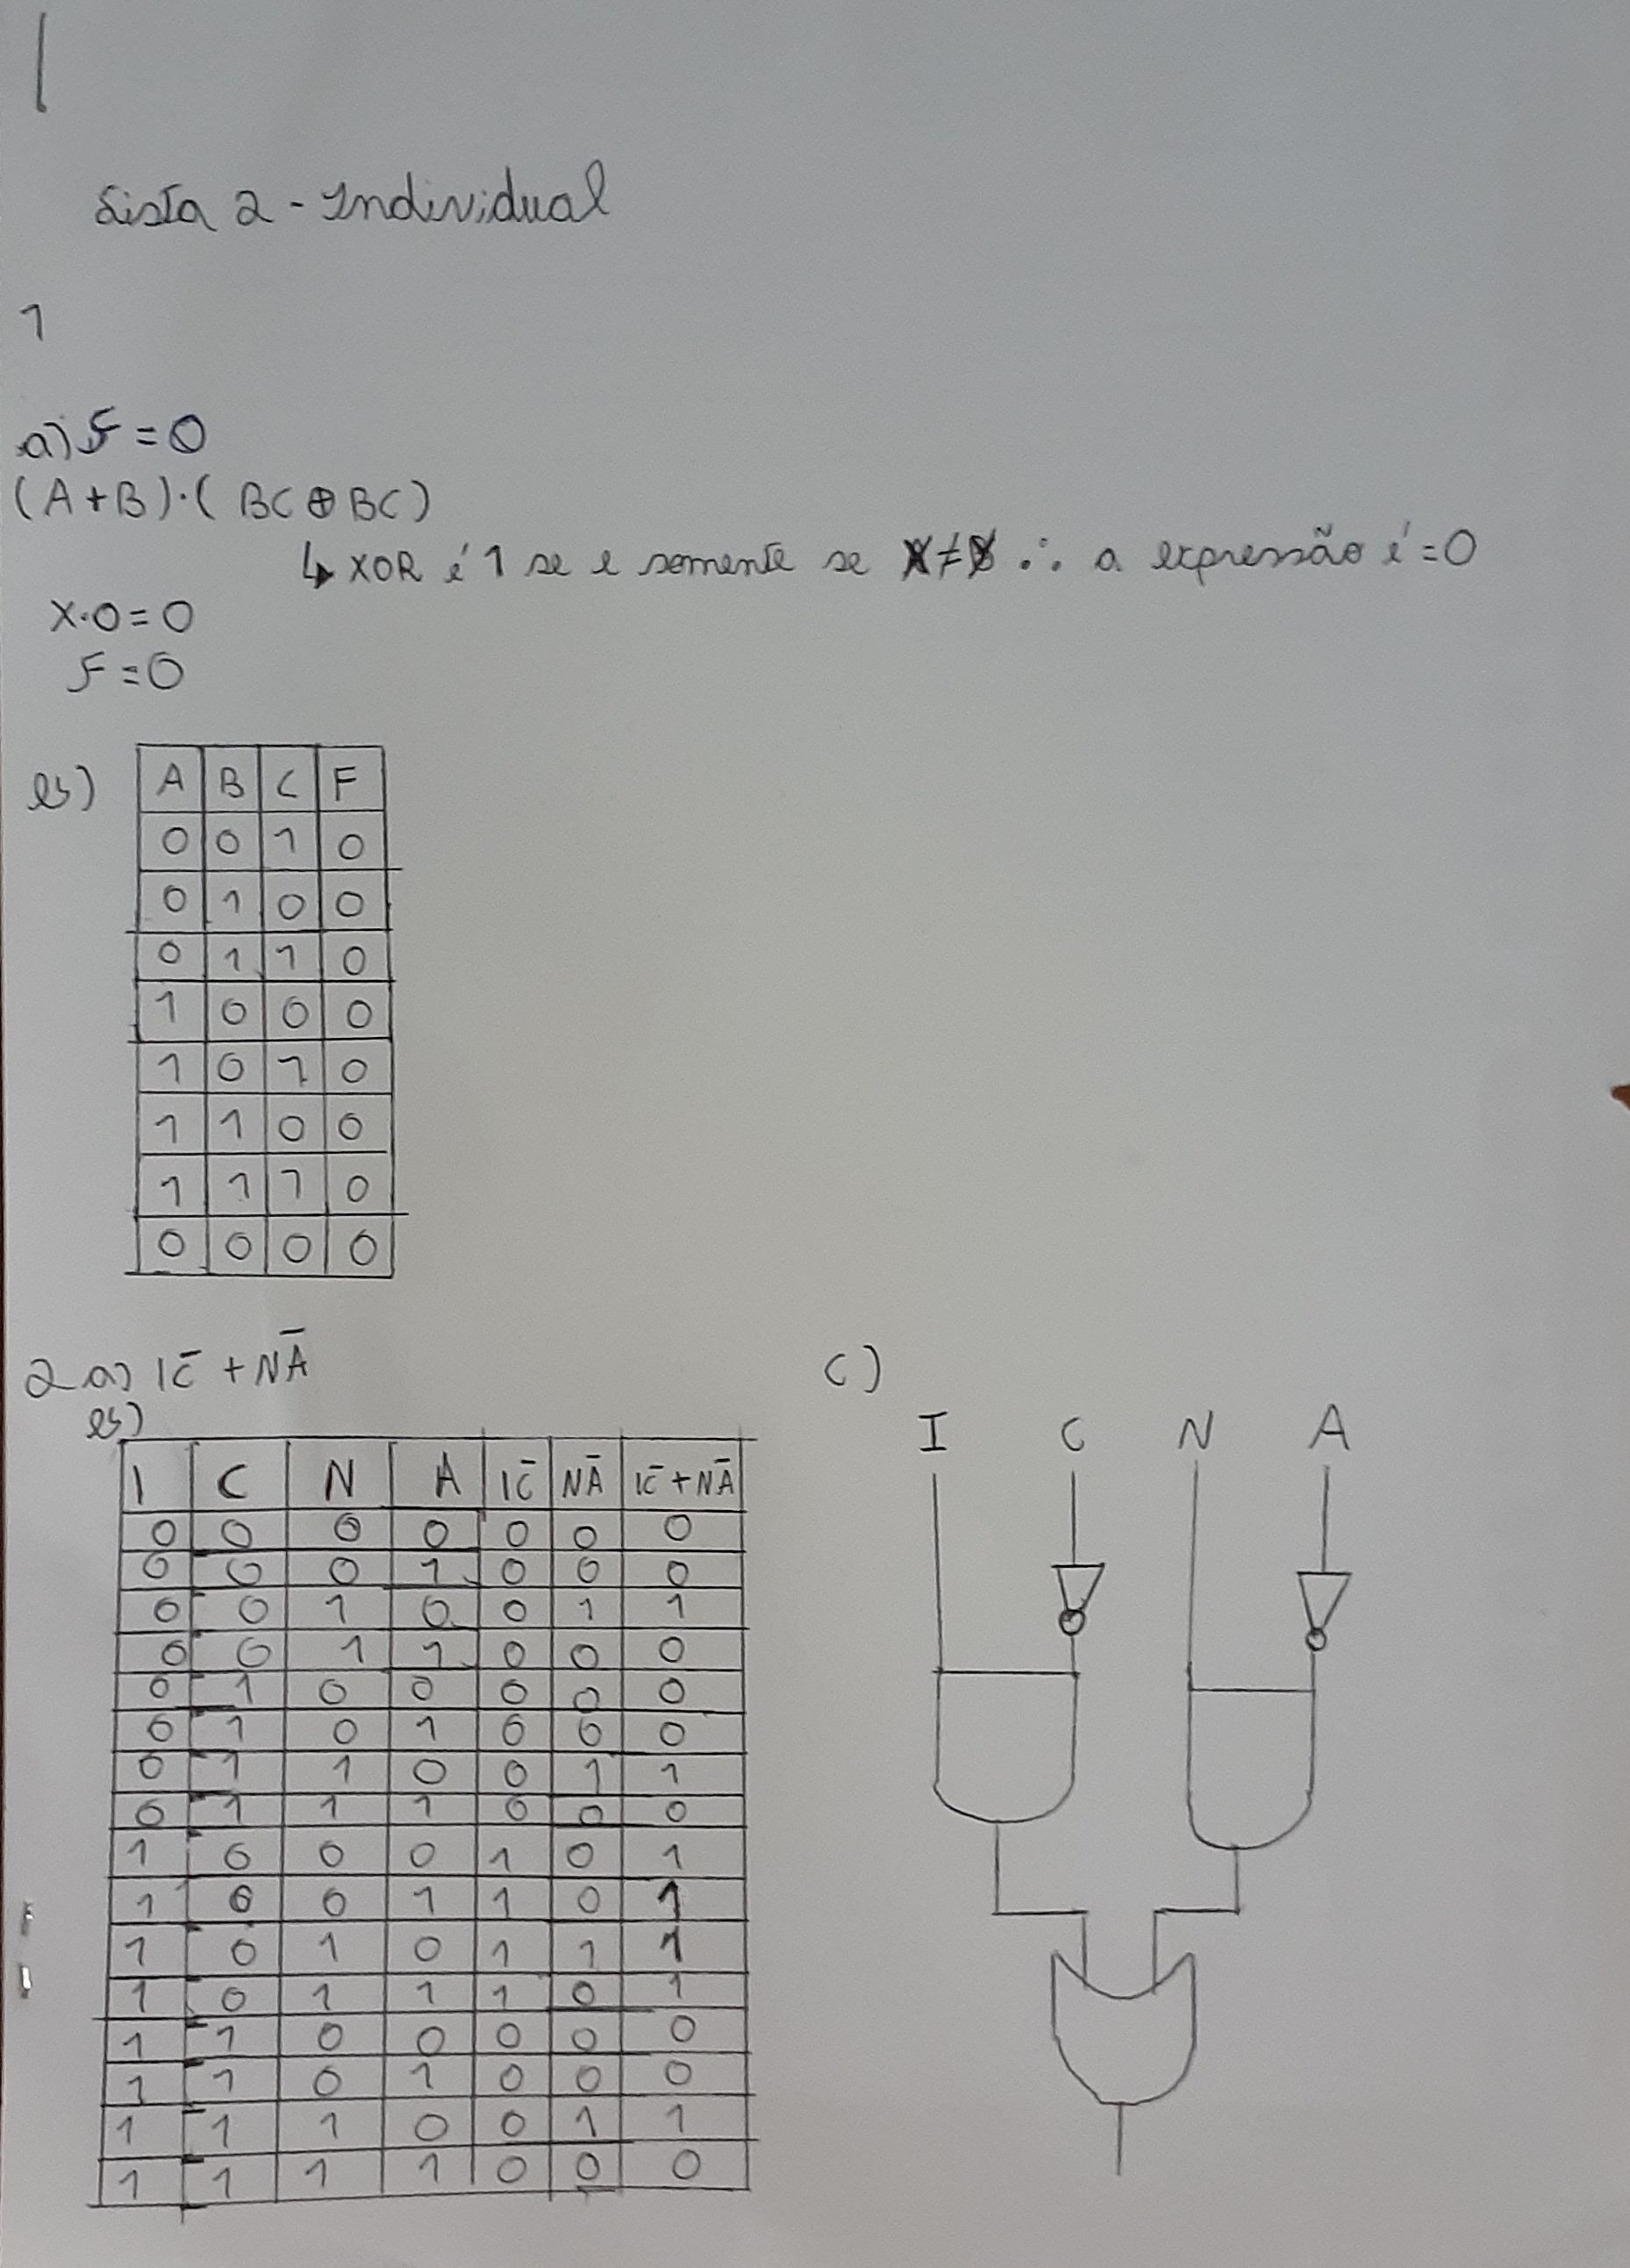 Lista 2 - Individual
1
a) F = 0
(A + B)·(BC ⊕ BC)
↳ XOR é 1 se e somente se ∴ a expressão é = 0
X·0 = 0
F = 0
b)
A B C F
0 0 1 0
0 1 0 0
0 1 1 0
1 0 0 0
1 0 1 0
1 1 0 0
1 1 1 0
0 0 0 0
2 a) IC̄ + NĀ
b)
I C N A IC̄ NĀ IC̄ + NĀ
0 0 0 0 0 0 0
0 0 0 1 0 0 0
0 0 1 0 0 1 1
0 0 1 1 0 0 0
0 1 0 0 0 0 0
0 1 0 1 0 0 0
0 1 1 0 0 1 1
0 1 1 1 0 0 0
1 0 0 0 1 0 1
1 0 0 1 1 0 1
1 0 1 0 1 1 1
1 0 1 1 1 0 1
1 1 0 0 0 0 0
1 1 0 1 0 0 0
1 1 1 0 0 1 1
1 1 1 1 0 0 0
c)
I C N A